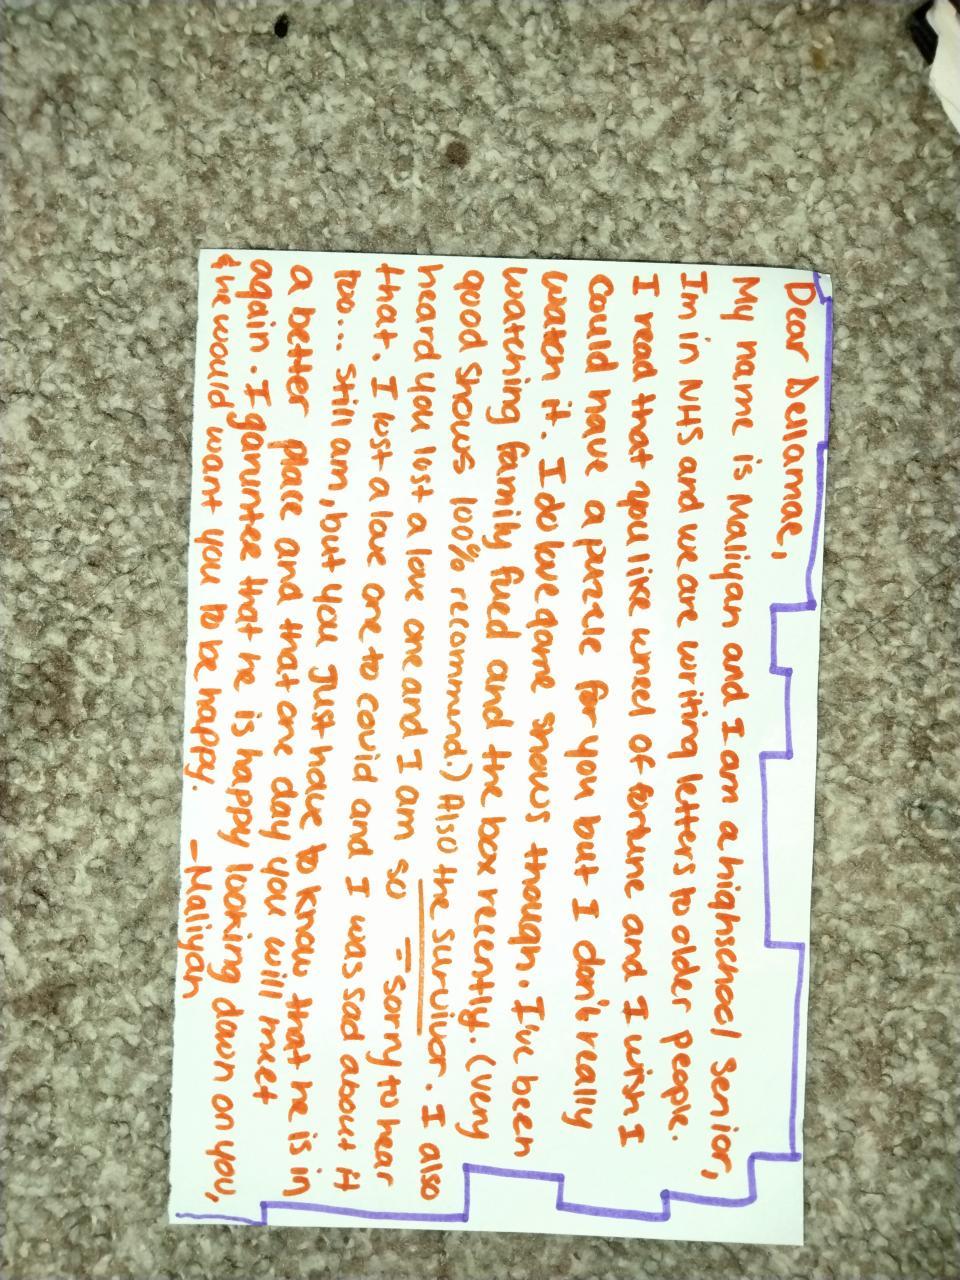 Dear Dellamae,
My name is Maliyan and I am a highschool senior,
Im in NHS and we are writing letters to older people.
I read that you like wheel of fortune and I wish I
could have a puzzle for you but I don't really
watch it. I do love game shows though. I've been
watching family fued and the box recently. (very
good shows 100% recommend.) Also the survivor. I also
heard you lost a love one and I am so - sorry to hear
that. I lost a love one to covid and I was sad about it
too... still am, but you just have to know that he is in
a better place and that one day you will meet
again. I garuntee that he is happy looking down on you,
& he would want you to be happy. -Maliyah